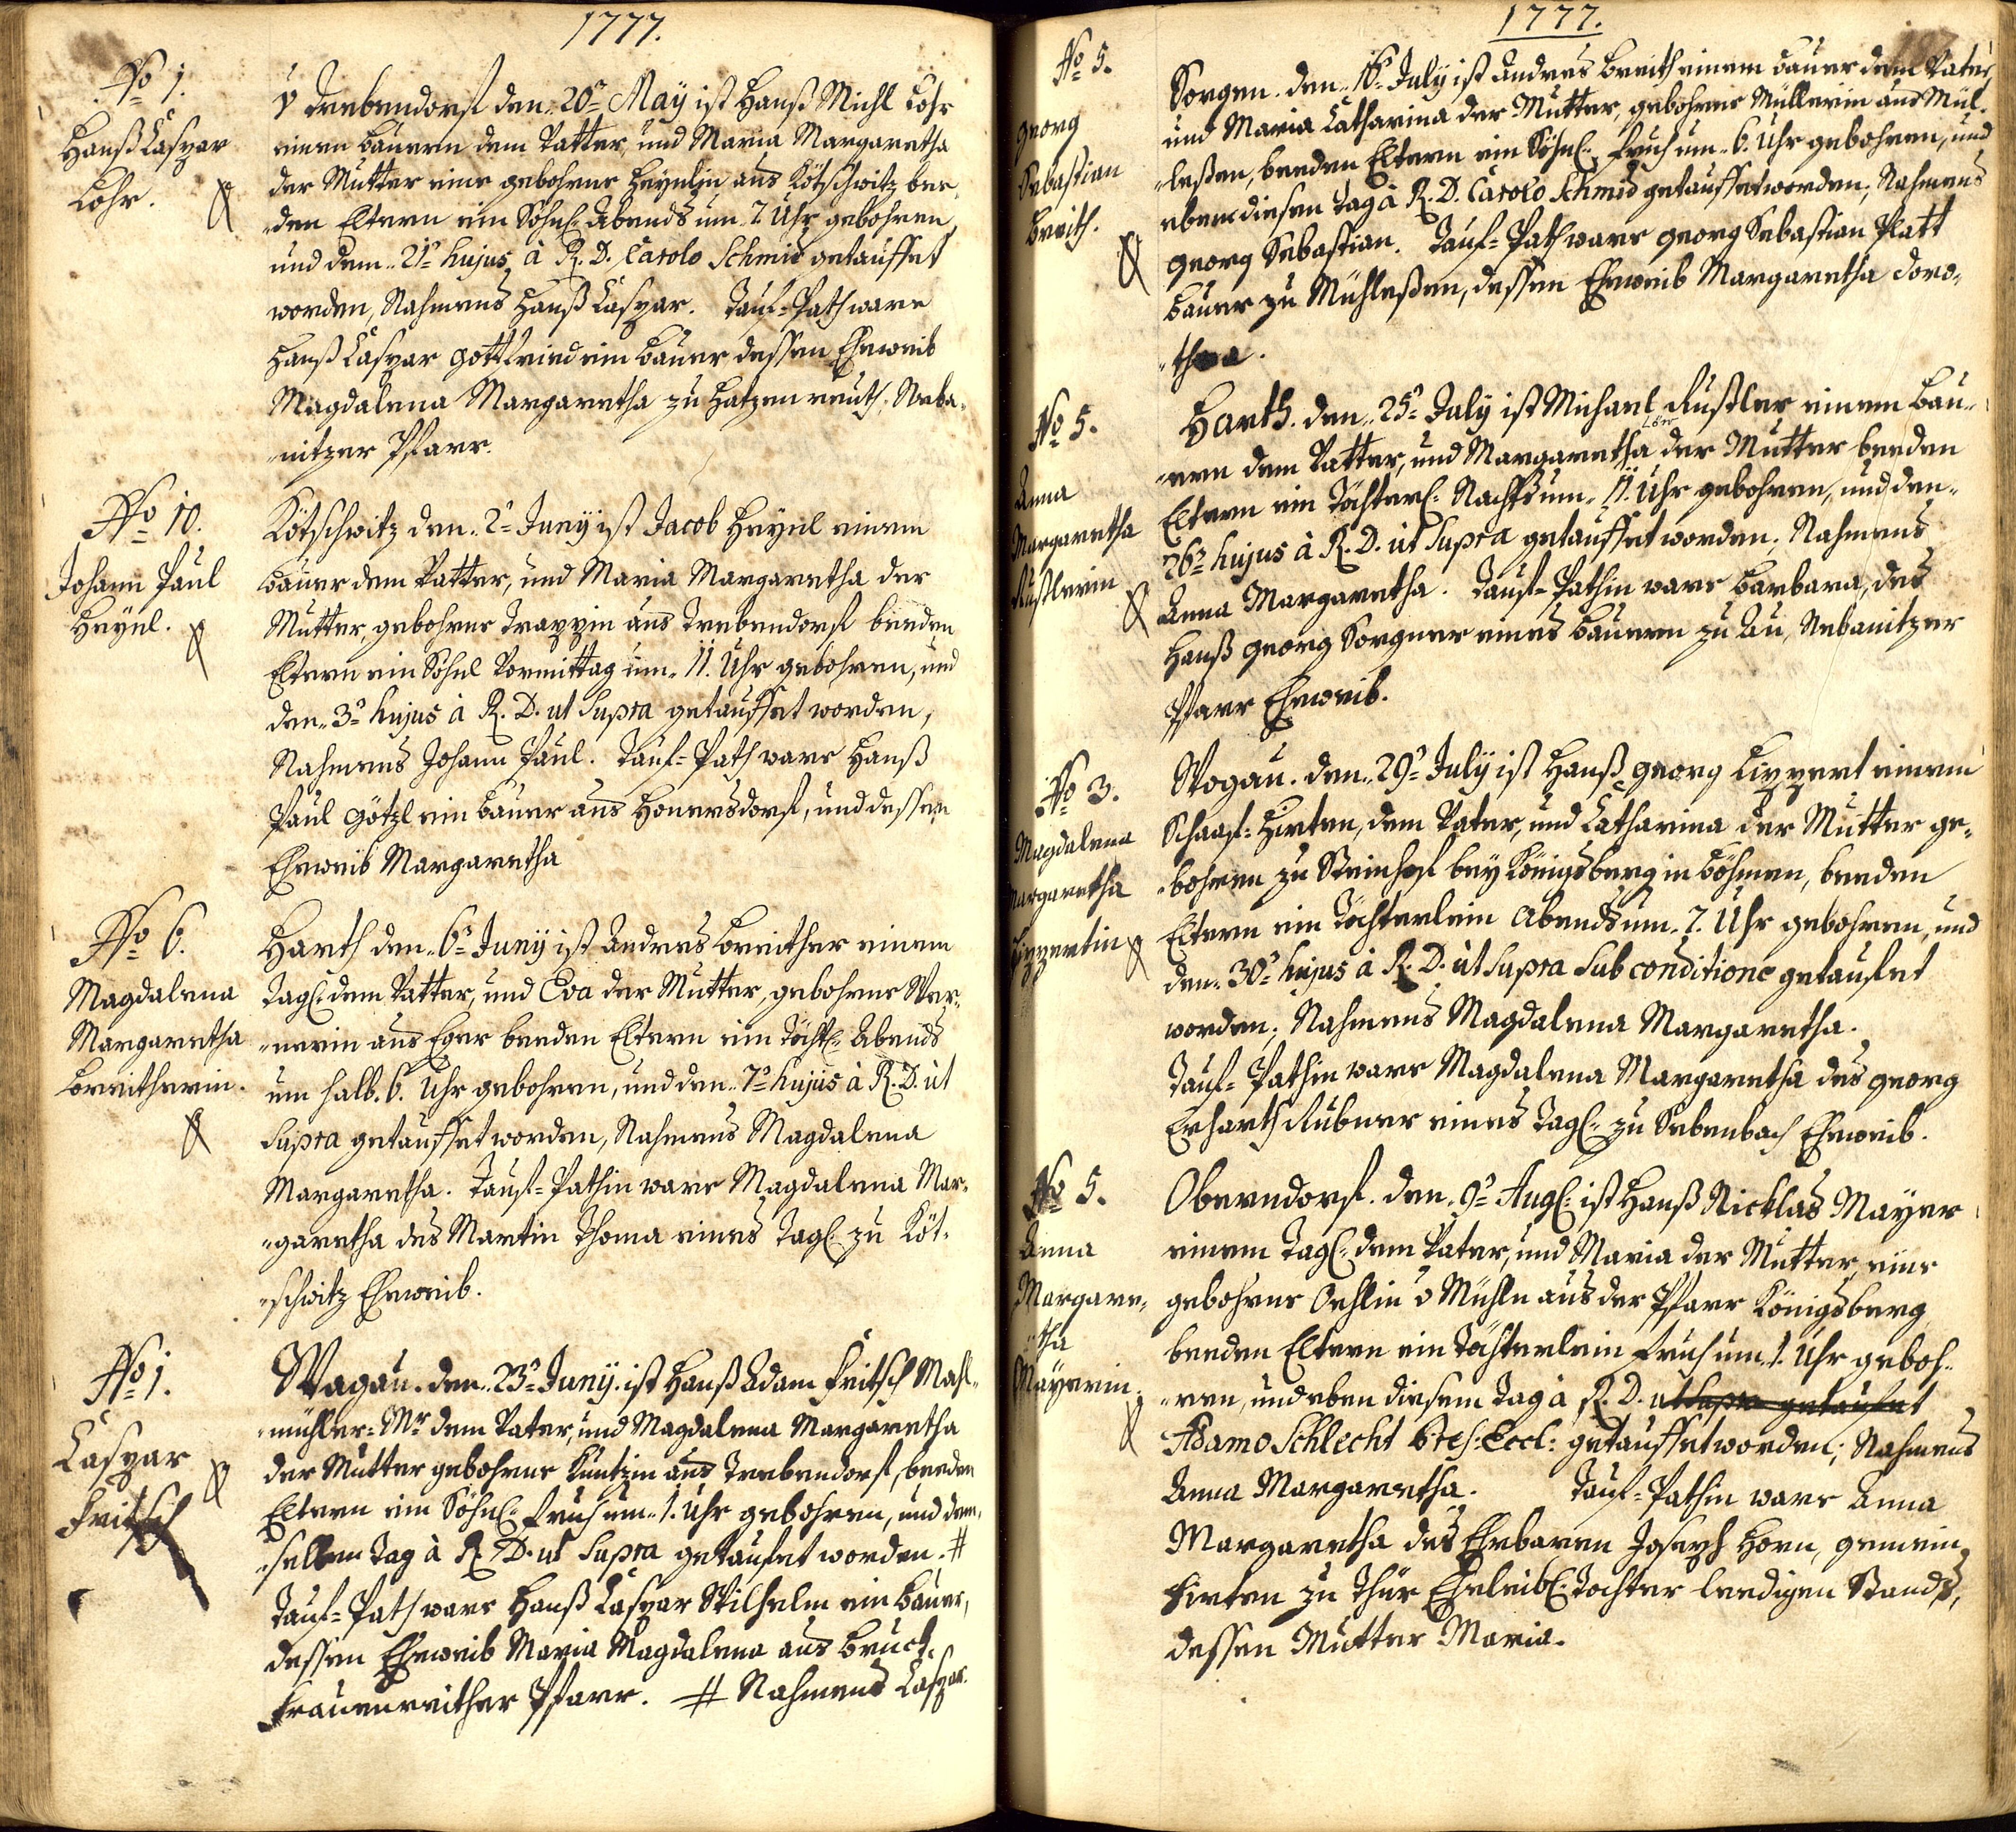 1777.
No 1.
Hanß Caspar
Lohr.
v Trebendorf den 20ten May ist Hanß Michl Lohr
einem bauern dem Vatter, und Maria Margaretha
der Mutter eine gebohrne Heynlin aus Kötschwitz bee-
den Eltern ein Söhnl: Abends um 7 Uhr gebohren
und dem 21ten hujus à R. D. Carolo Schmid getauffet
worden, Nahmens Hanß Caspar. Tauf=Path ware
Hanß Caspar Gottfried ein bauer dessen Eheweib
Magdalena Margaretha zu Hatzenreuth, Neba-
nitzer Pfarr.
No 10.
Johann Paul
Heynl.
Kötschwitz den 2ten Juny ist Jacob Heynl einem
bauer dem Vatter, und Maria Margaretha der
Mutter, gebohrne Trappin aus Trebendorf beeden
Eltern ein Söhnl Vormittag um 11. Uhr gebohren, und
den 3ten hujus à R. D. ut supra getauffet worden,
Nahmens Johann Paul. Tauf=Path ware Hanß
Paul Götzl ein bauer aus Honersdorf, und dessen
Eheweib Margaretha
No 6.
Magdalena
Margaretha
Breitherin.
Harth den 6ten Juny ist Andreas Breither einem
Tagl: dem Vatter, und Eva der Mutter, gebohrne Wer-
nerin aus Eger beeden Eltern ein Töchtl: Abends
um halb. 6. Uhr gebohren, und den 7ten hujus à R. D. ut
supra getauffet worden, Nahmens Magdalena
Margaretha. Tauf=Pathin ware Magdalena Mar-
garetha des Martin Thoma eines Tagl: zu Köt-
schwitz Eheweib.
No 1.
Caspar
Fritsch
Wogau. den 23ten Juny. ist Hanß Adam Fritsch Mahl-
mühler=Mr dem Vater, und Magdalena Margaretha
der Mutter gebohrne Küntzin aus Trebendorf, beeden
Eltern ein Söhnl: fruh um 1. Uhr gebohren, und dem-
selben Tag à R. D. ut supra getaufet worden. #
Tauf=Path ware Hanß Caspar Wilhelm ein bauer,
dessen Eheweib Maria Magdalena aus Bruck
Frauenreither Pfarr. # Nahmens Caspar.
1777.
No 5.
Georg
Sebastian
Breith.
Sorgen. den 16ten July ist Andreas Breith einem bauer dem Vater,
und Maria Catharina der Mutter, gebohrne Müllerin aus Mül-
leßen, beeden Eltern ein Söhnl: fruh um 6. Uhr gebohren, und
eben diesen Tag à R. D. Carolo Schmid getauffet worden, Nahmens
Georg Sebastian. Tauf=Path ware Georg Sebastian Platt
bauer zu Mühleßen, dessen Eheweib Margaretha Doro-
thea.
No 5.
Anna
Margaretha
Rustlerin
Harth. den 25ten July ist Michael Rustler einem bau-
ern dem Vatter, und Margaretha der Mutter beeden
Eltern ein Töchterl: Nachts um 11. Uhr gebohren, und den
26ten hujus à R. D. ut supra getauffet worden, Nahmens
Anna Margaretha. Tauf=Pathin ware Barbara, des
Hanß Georg Sorgner eines bauern zu Au, Nebanitzer
Pfarr Eheweib.
No 3.
Magdalena
Margaretha
Lippertin
Wogau. den 29ten July ist Hanß Georg Lippert einem
Schaaf=Hirten, dem Vater, und Catharina der Mutter ge-
bohren zu Steinhof bey Königsberg in Böhmen, beeden
Eltern ein Töchterlein Abends um 7. Uhr gebohren, und
den 30ten hujus à R. D. ut supra sub conditione getaufet
worden, Nahmens Magdalena Margaretha.
Tauf=Pathin ware Magdalena Margaretha des Georg
Erharth Rubner eines Tagl: zu Sebenbach Eheweib.
No 5.
Anna
Margare-
tha
Mayerin.
Oberndorf. den 9ten Aug: ist Hanß Nicklas Mayer
einem Tagl: dem Vater, und Maria der Mutter, eine
gebohrne Oehlin v Mühln aus der Pfarr Königsberg
beeden Eltern ein Töchterlein fruh um 1. Uhr geboh-
ren, und eben diesem Tag à R. D. ut supra getaufet
Adamo Schlecht getauffet worden, Nahmens
Anna Margaretha. Tauf=Pathin ware Anna
Margaretha des Ehrbaren Joseph Horn, Gemein
Hirten zu Thür Eheleibl: Tochter leedigen Stands,
dessen Mutter Maria.